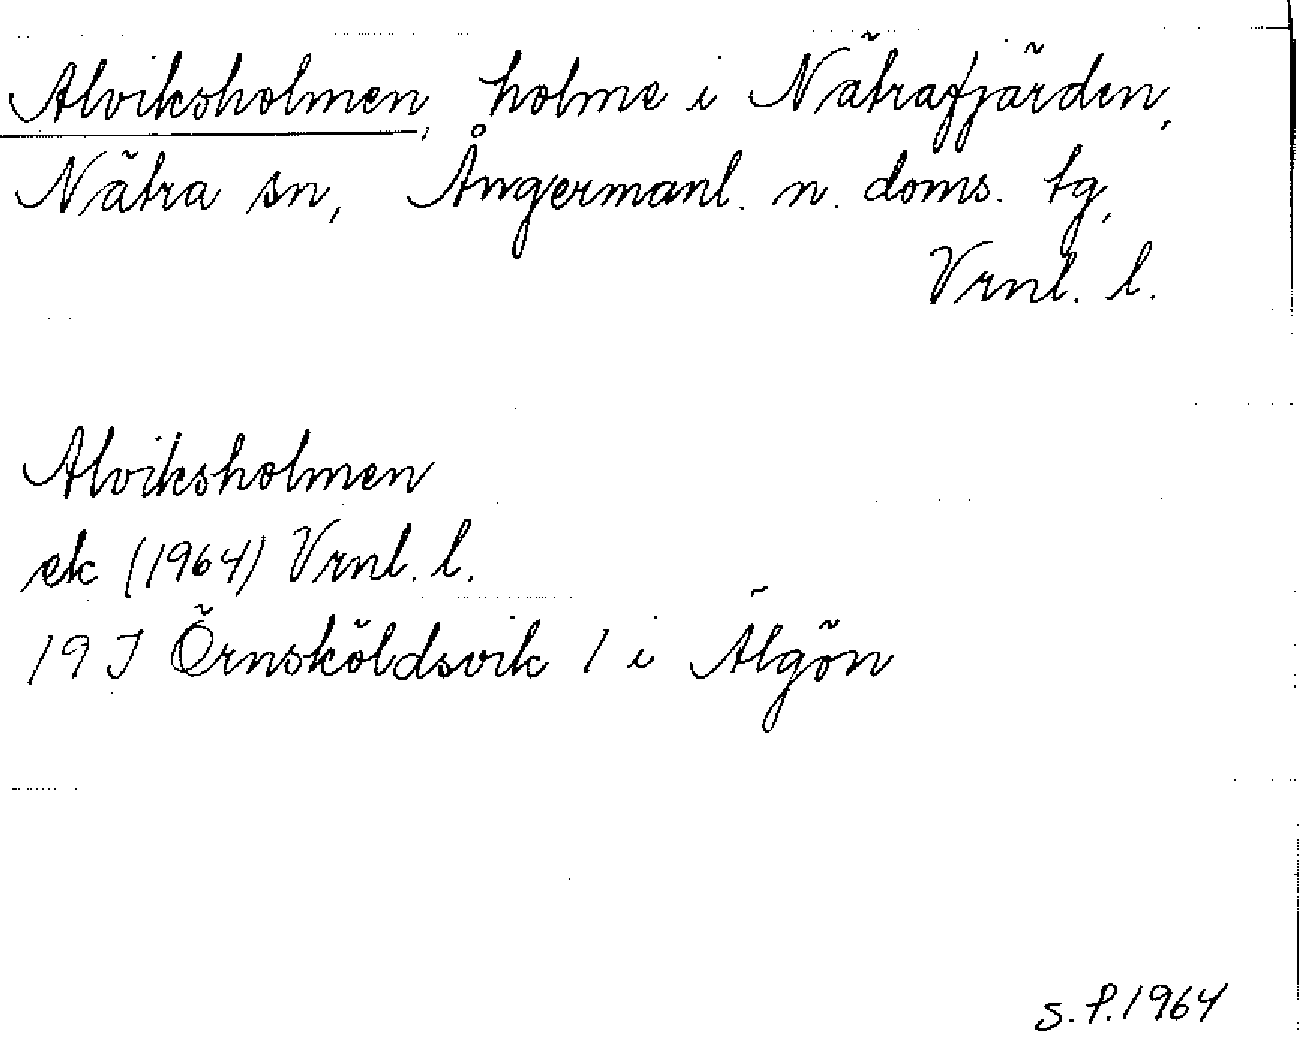 Alviksholmen, holme i Nätrafjärden,
Nätra sn, Ångermanl. n. doms. tg,
Vrnl. l.
Alviksholmen
ek (1964) Vrnl. l.
19 J Örnsköldsvik 1 i Älgön
S.P. 1964